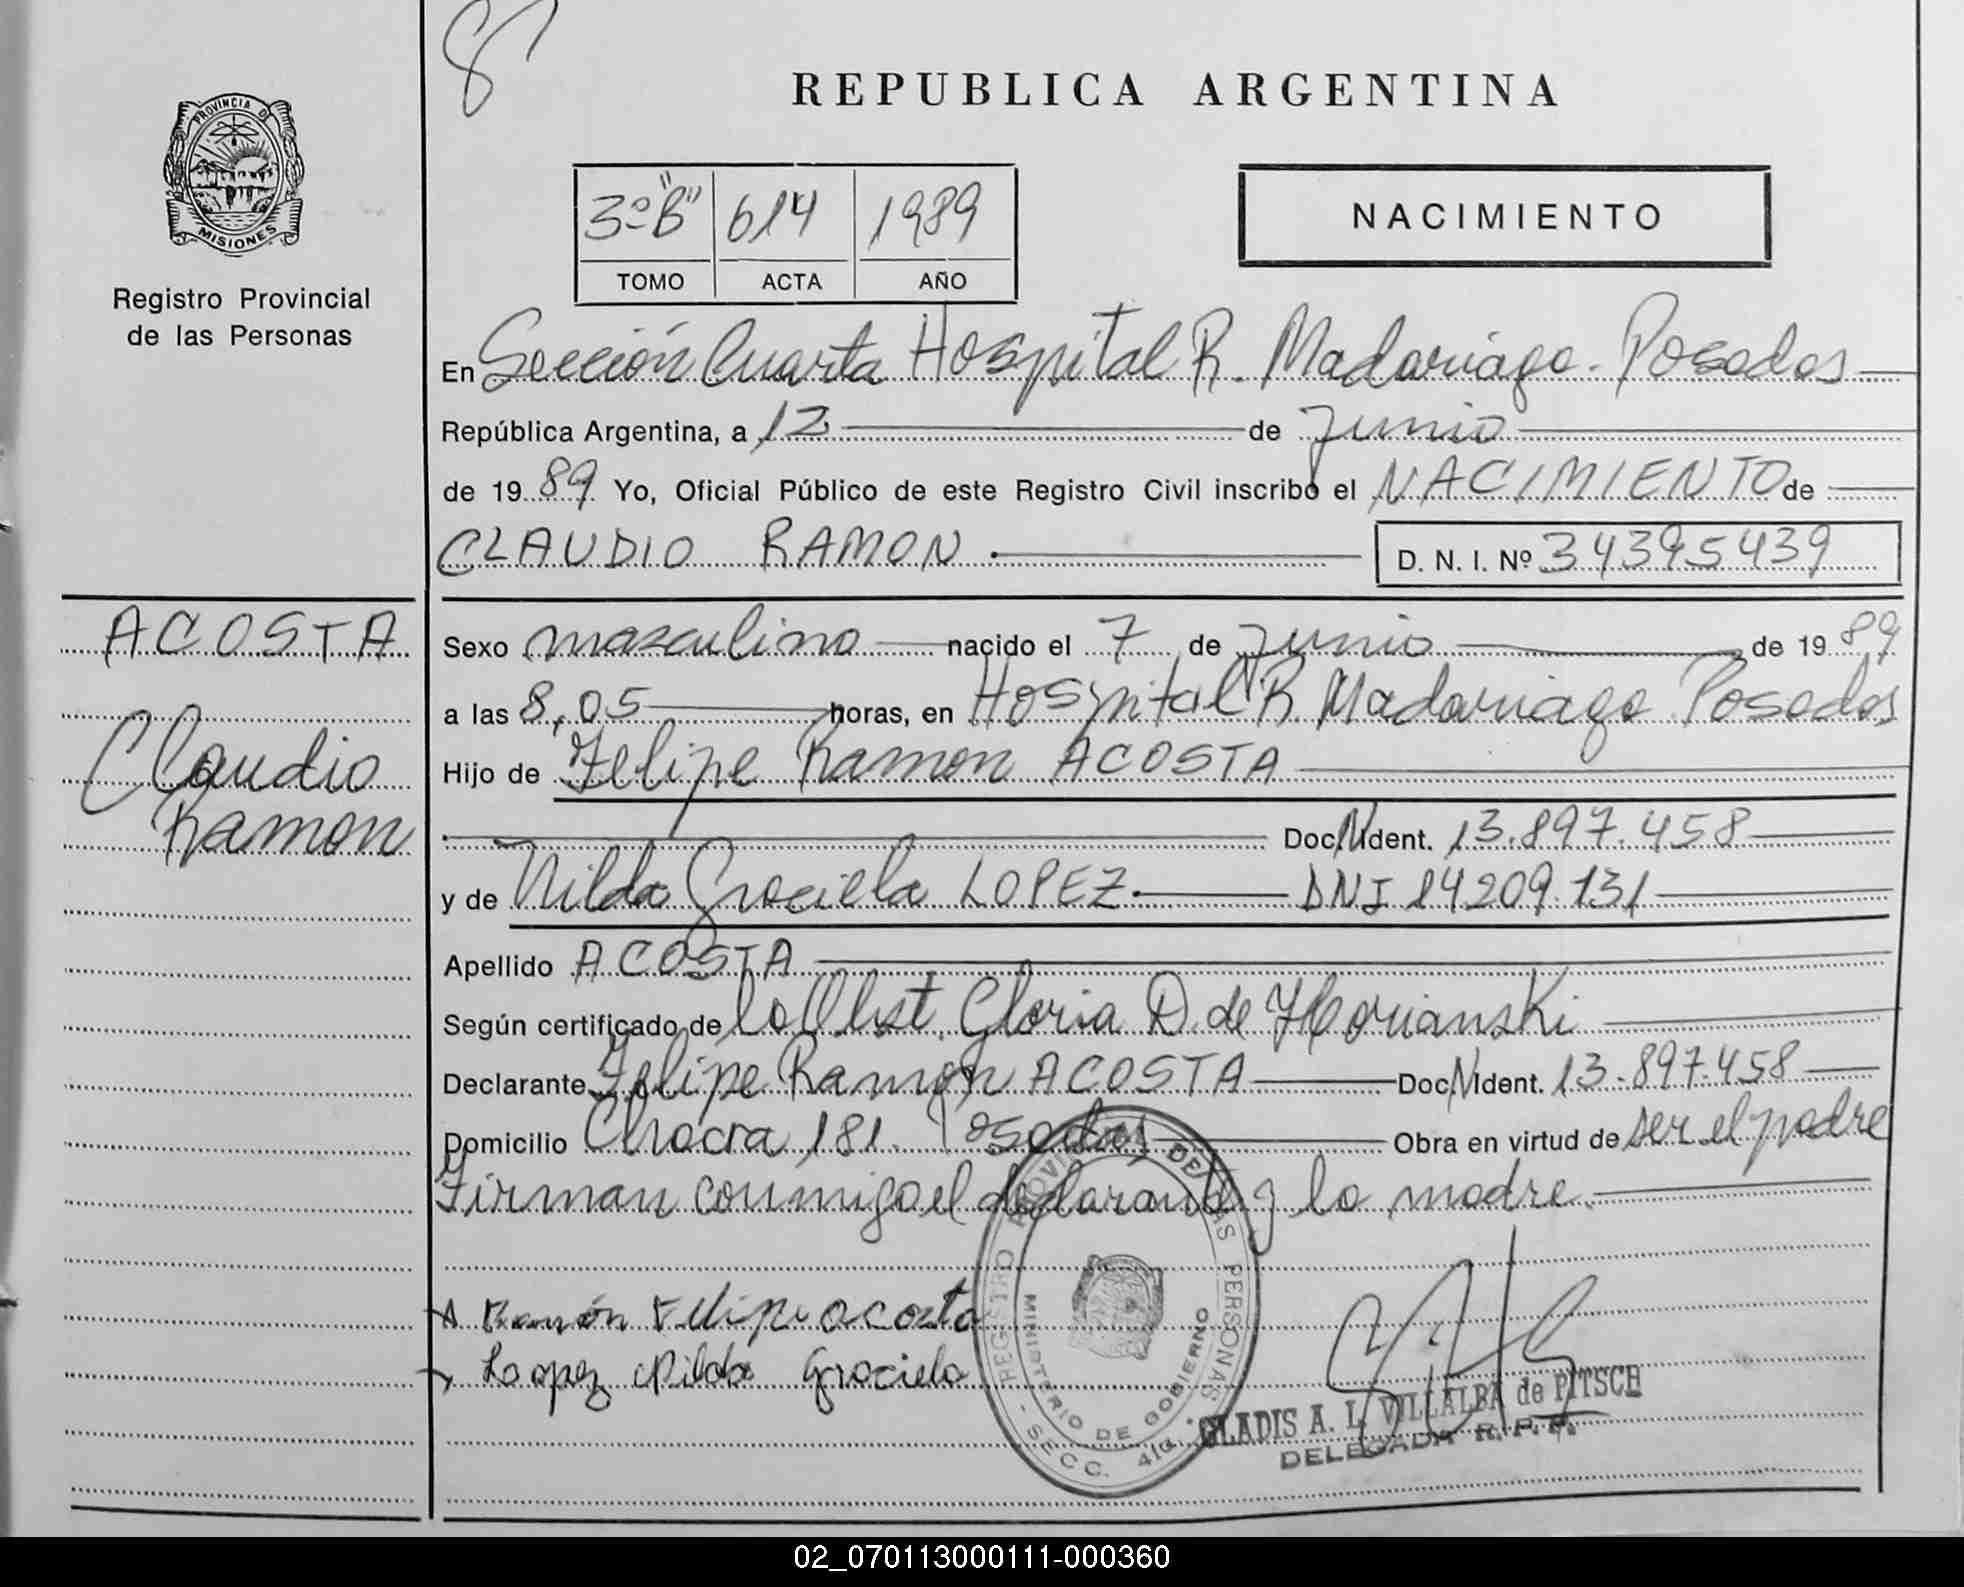 REPUBLICA ARGENTINA
PROVINCIA D
MISIONES
Registro Provincial
de las Personas
3º "B" 614 1989
TOMO ACTA AÑO
NACIMIENTO
En Sección Cuarta Hospital R. Madariaga - Posadas
República Argentina, a 12 de Junio
de 1989 Yo, Oficial Público de este Registro Civil inscribo el NACIMIENTO de
CLAUDIO RAMON D. N. I. Nº 34395439
ACOSTA
Claudio
Ramon
Sexo masculino nacido el 7 de Junio de 1989
a las 8,05 horas, en Hospital R. Madariaga Posadas
Hijo de Felipe Ramon ACOSTA
Doc. Nident. 13.897.458
y de Nilda Graciela LOPEZ DNI 14209.131
Apellido ACOSTA
Según certificado de la Obst. Gloria D. de
Declarante Felipe Ramón ACOSTA Doc. Nident. 13.897.458
Domicilio Chacra 181. Posadas Obra en virtud de ser el padre
Firman conmigo el declarante y la madre
Ramón Felipe acosta
Loopez Nilda Graciela
REGISTRO PROVINCIAL DE LAS PERSONAS
MINISTERIO DE GOBIERNO
- SECC. 4ta. -
GLADIS A. L. VILLALBA de PITSCH
DELEGADA R. P. P.
02_070113000111-000360